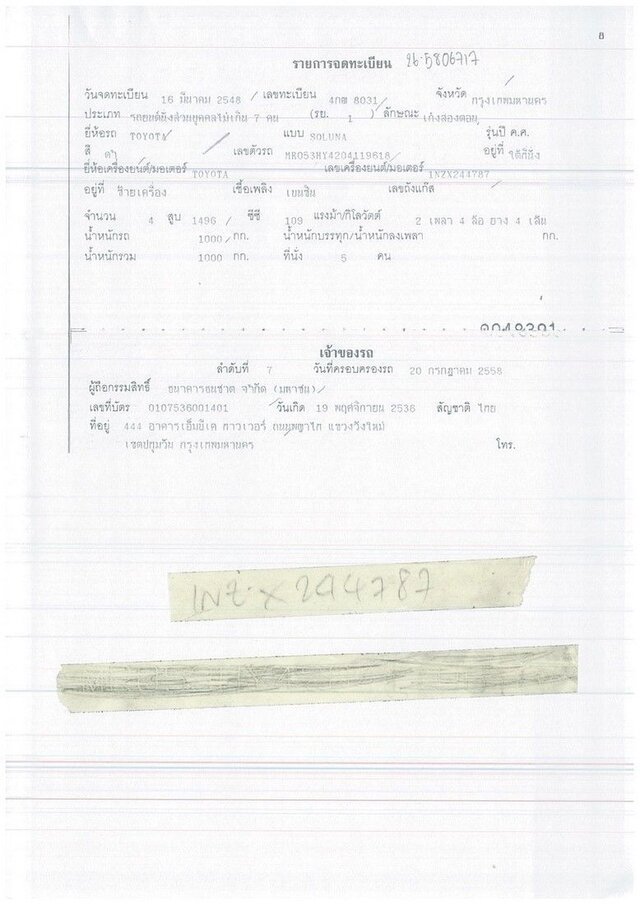 8
รายการจดทะเบียน 26-5806717
วันจดทะเบียน 16 มีนาคม 2548 / เลขทะเบียน 4กฬ 8031 / จังหวัด กรุงเทพมหานคร
ประเภท รถยนต์นั่งส่วนบุคคลไม่เกิน 7 คน (รย. 1 ) ลักษณะ เก๋งสองตอน
ยี่ห้อรถ TOYOTA แบบ SOLUNA รุ่นปี ค.ศ.
สี ดำ เลขตัวรถ MR053HY4204119618 อยู่ที่ ใต้ที่นั่ง
ยี่ห้อเครื่องยนต์/มอเตอร์ TOYOTA เลขเครื่องยนต์/มอเตอร์ 1NZX244787
อยู่ที่ ซ้ายเครื่อง เชื้อเพลิง เบนซิน เลขถังแก๊ส
จำนวน 4 สูบ 1496 / ซีซี 109 แรงม้า/กิโลวัตต์ 2 เพลา 4 ล้อ ยาง 4 เส้น
น้ำหนักรถ 1000 กก. น้ำหนักบรรทุก/น้ำหนักลงเพลา กก.
น้ำหนักรวม 1000 กก. ที่นั่ง 5 คน
เจ้าของรถ
ลำดับที่ 7 วันที่ครอบครองรถ 20 กรกฎาคม 2558
ผู้ถือกรรมสิทธิ์ ธนาคารธนชาต จำกัด (มหาชน)
เลขที่บัตร 0107536001401 วันเกิด 19 พฤศจิกายน 2536 สัญชาติ ไทย
ที่อยู่ 444 อาคารเอ็มบีเค ทาวเวอร์ ถนนพญาไท แขวงวังใหม่
เขตปทุมวัน กรุงเทพมหานคร โทร.
1NZ-X244787